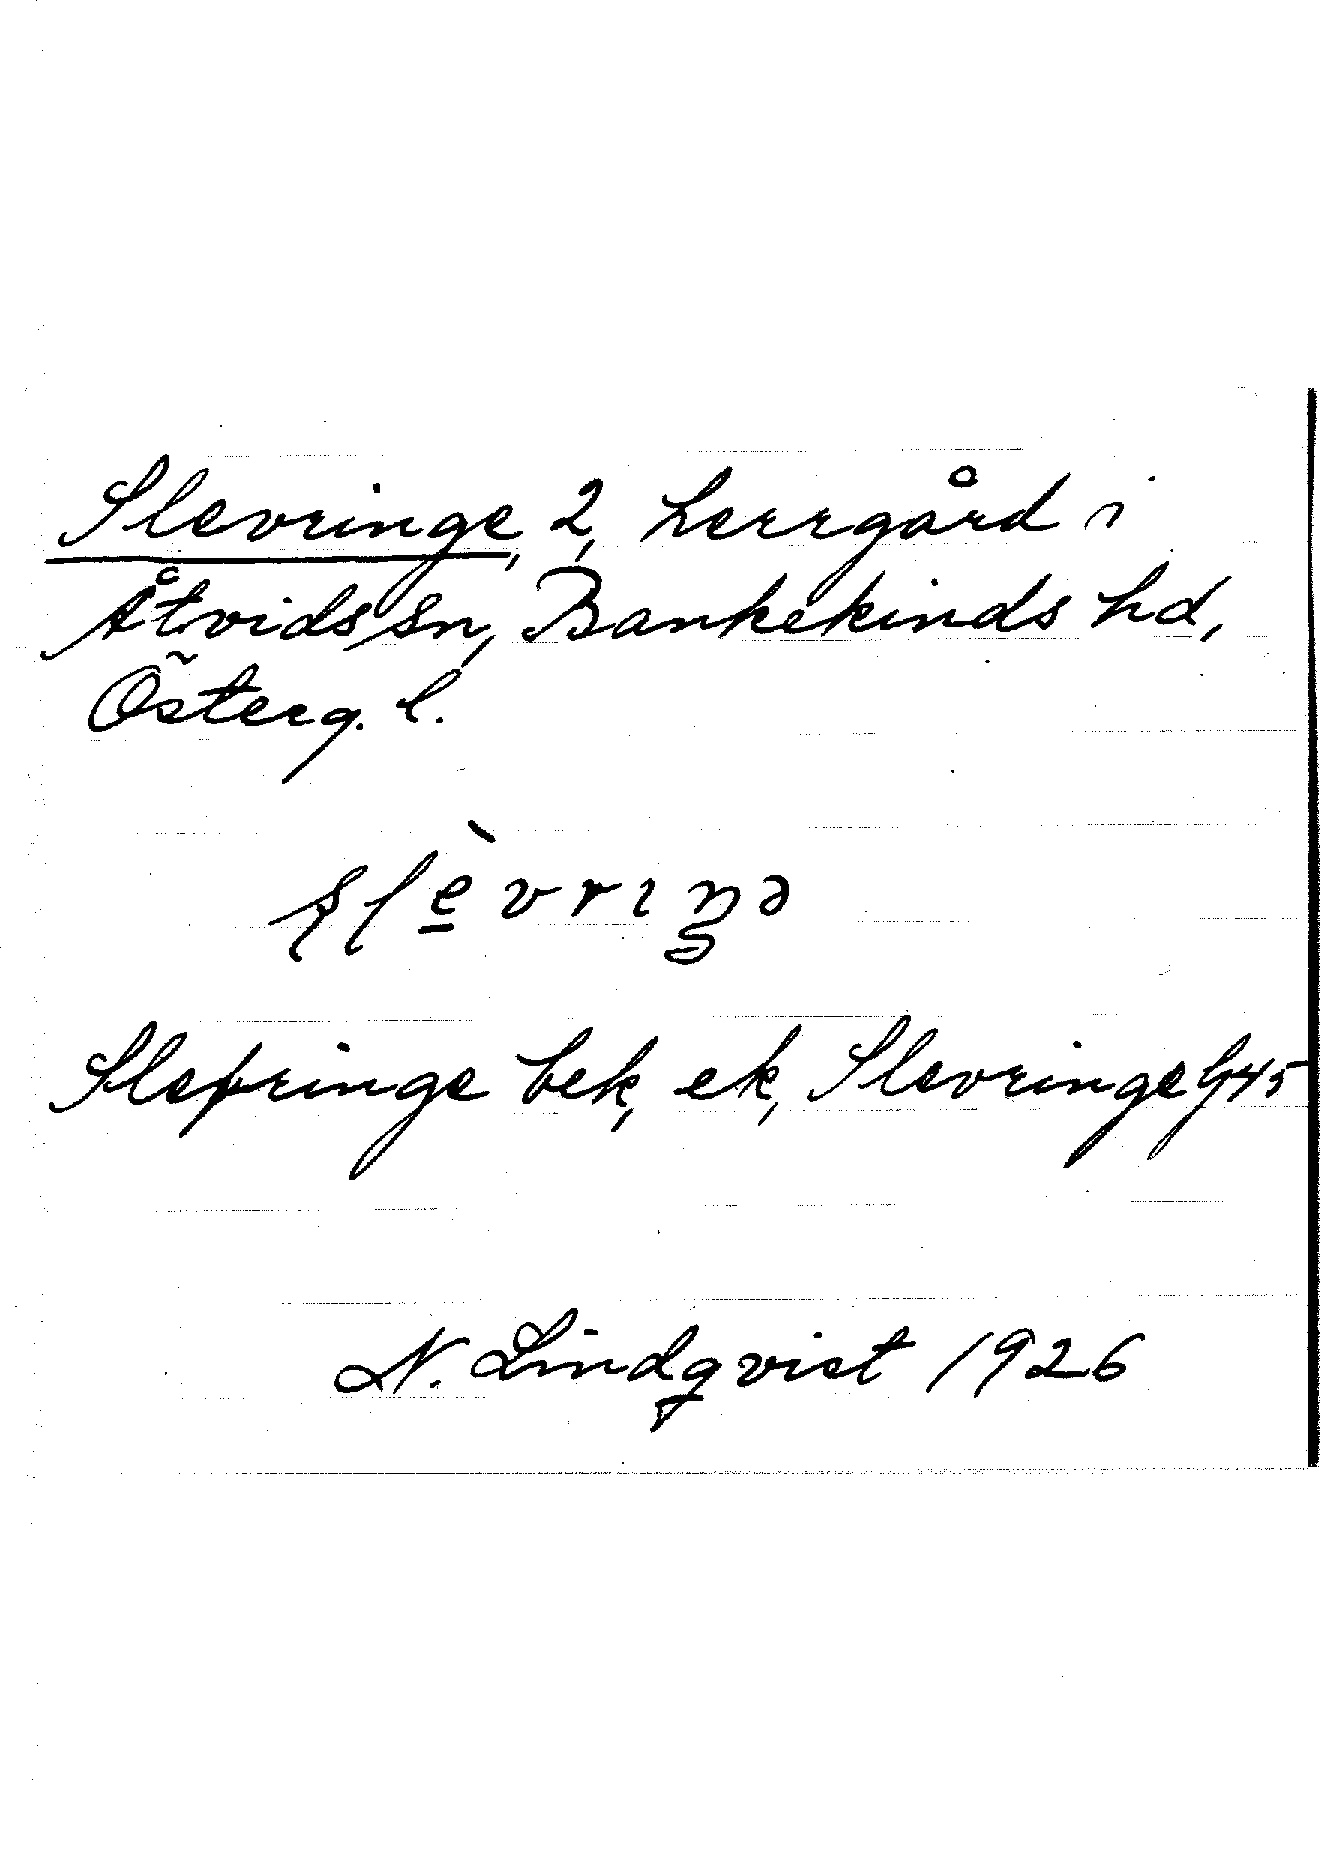 Slevringe, 2, herrgård i
Åtvids sn, Bankekinds hd,
Österg. l.
slèvriŋə
Slefringe bek, ek, Slevringe G45
N. Lindqvist 1926